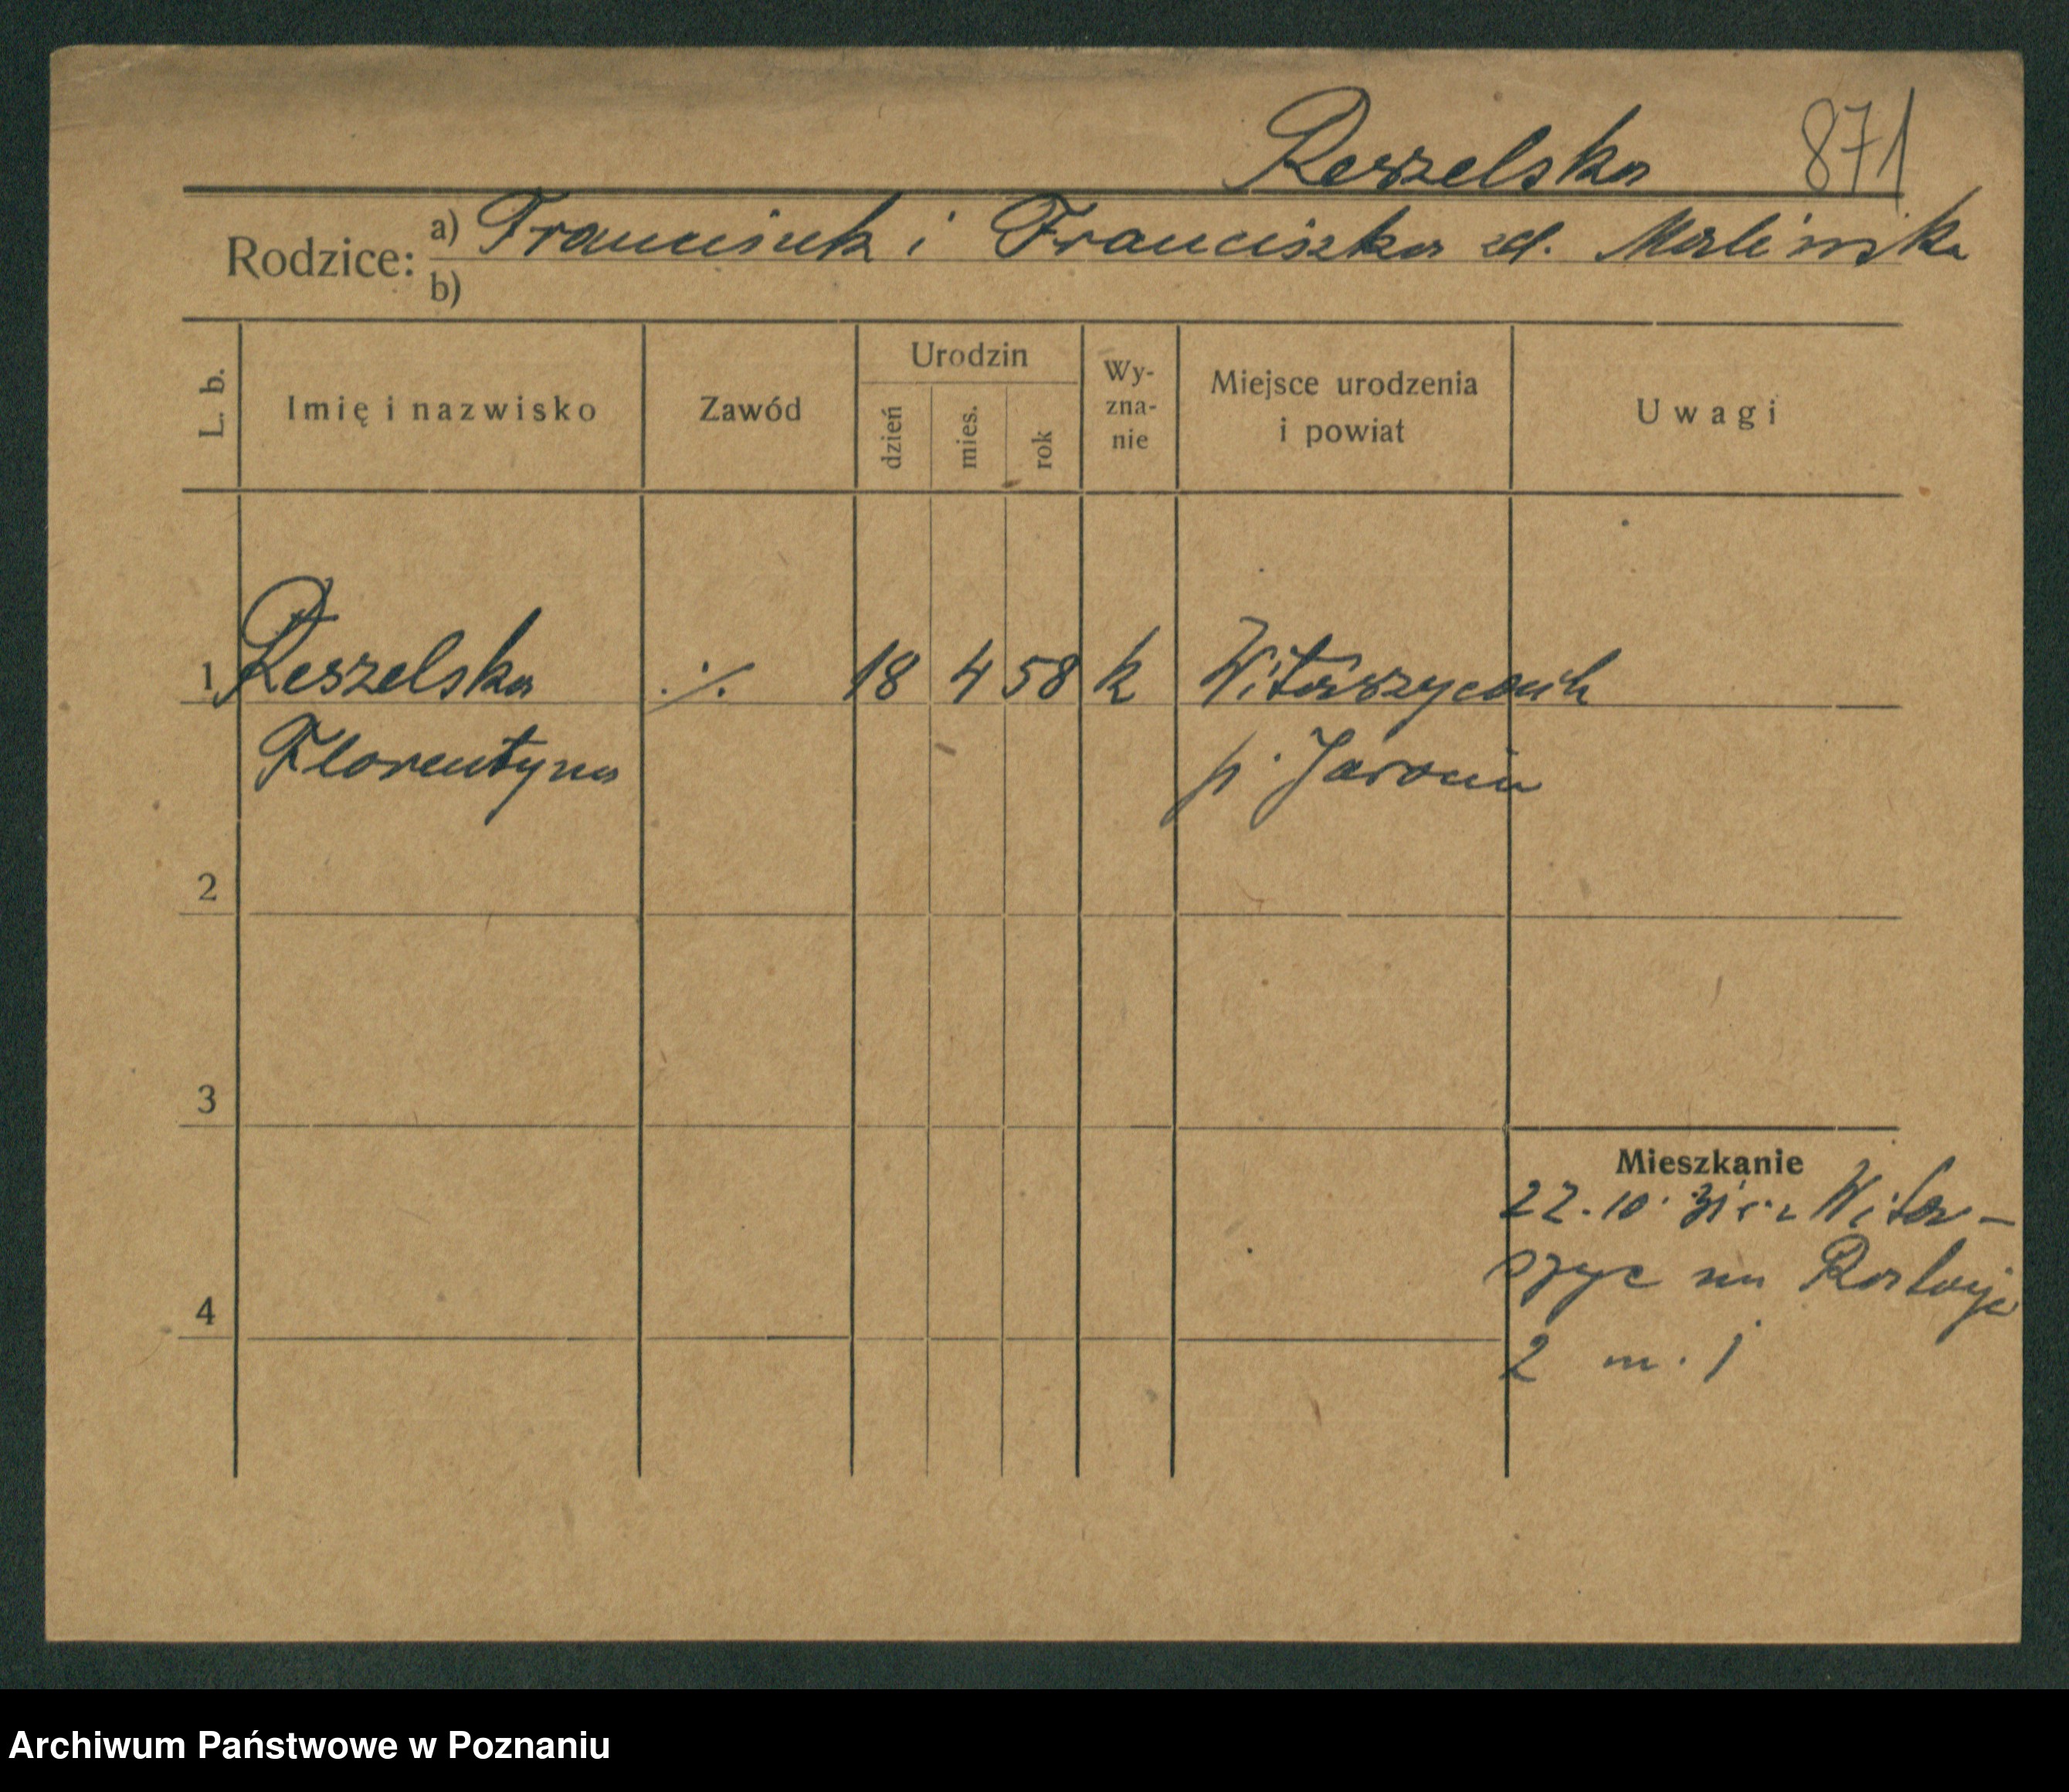 Reszelska 871
Rodzice: a) Franciszek i Franciszka zd. Marlewska
b)
L. b. Imię i nazwisko Zawód Urodzin dzień mies. rok Wy-zna-nie Miejsce urodzenia i powiat Uwagi
1 Reszelska ./. 18 4 58 k Witaszyczuch
Florentyna p. Jarocin
2
3
Mieszkanie
22.10. 31 r. z Wita-
szyc na
4
2 m. 1
Archiwum Państwowe w Poznaniu